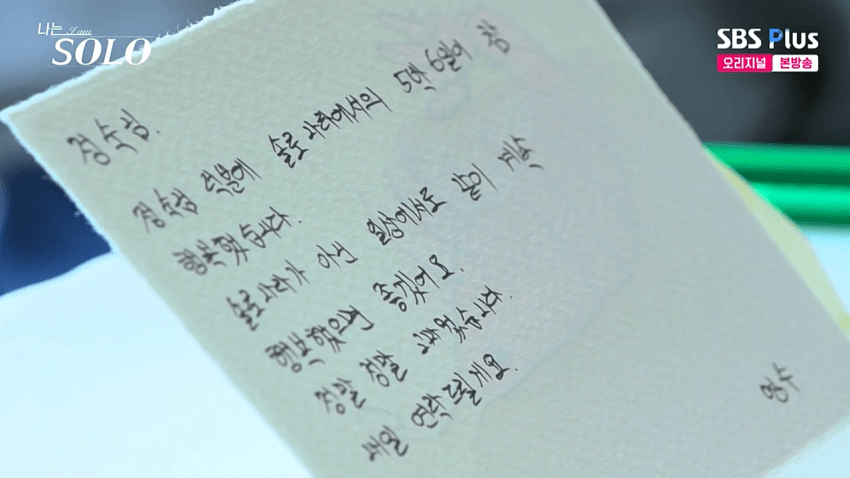 나는
I am
SOLO
SBS Plus
오리지널 본방송
정숙님.
정숙님 덕분에 솔로나라에서의 5박 6일이 참
행복했습니다.
솔로나라가 아닌 일상에서도 같이 계속
행복했으면 좋겠어요.
정말 정말 고마웠습니다.
내일 연락드릴게요.
영수